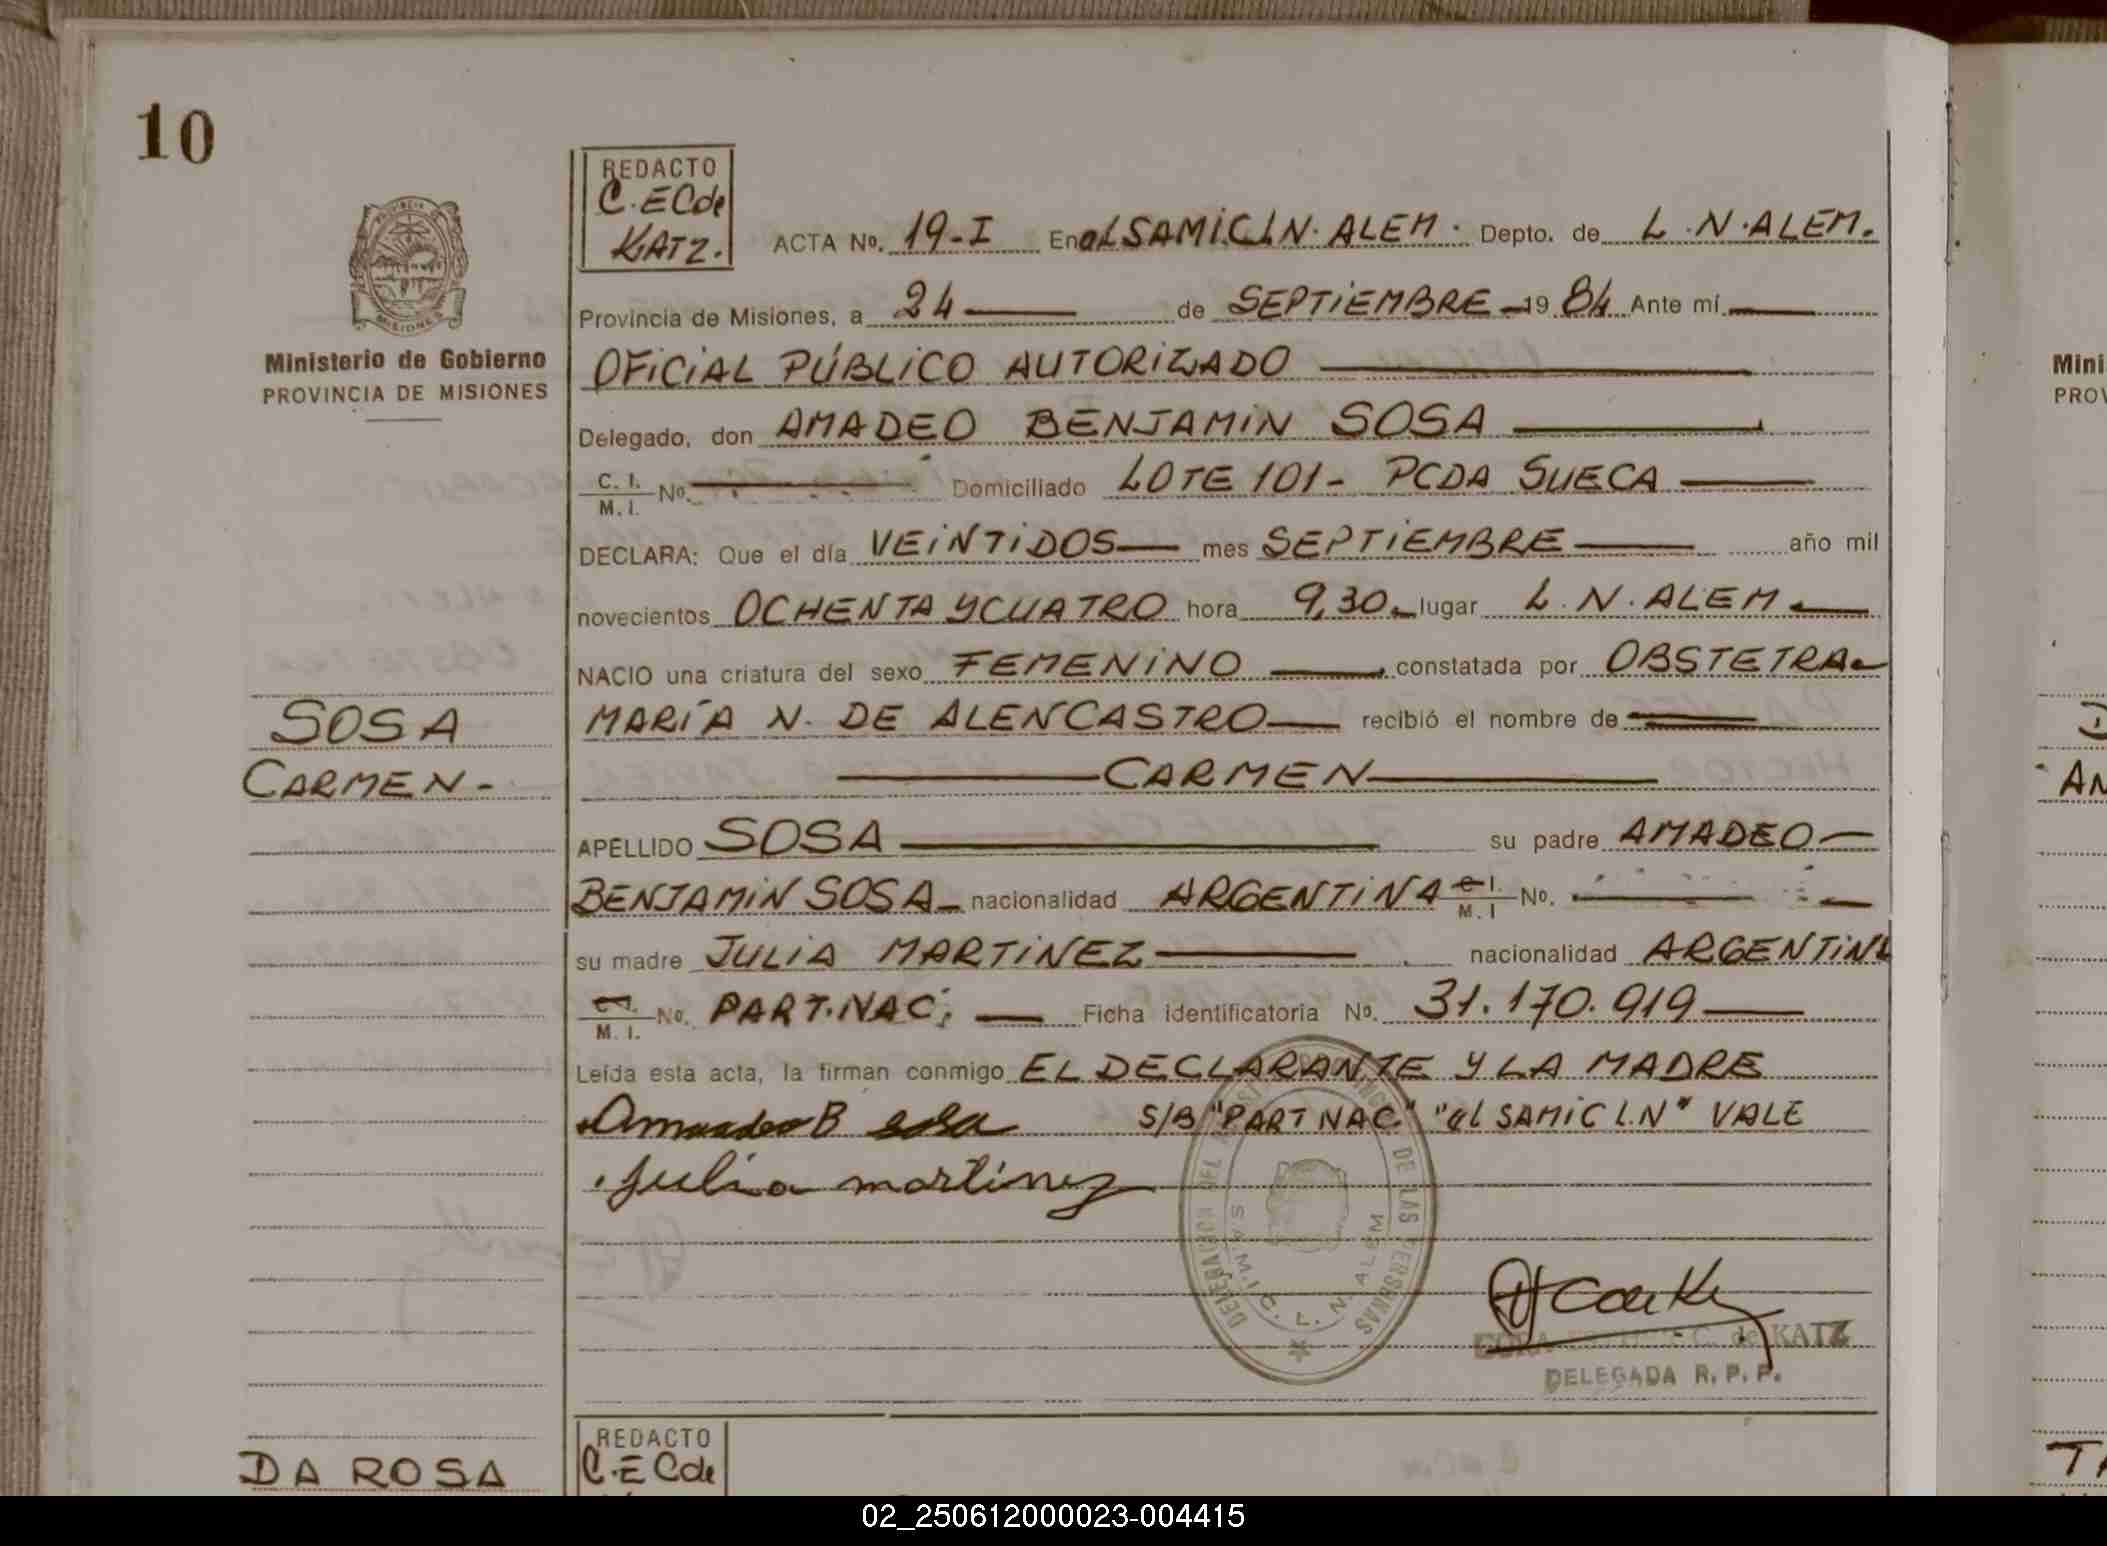 10
REDACTO
C.ECde
KATZ.
PROVINCIA DE
MISIONES
Ministerio de Gobierno
PROVINCIA DE MISIONES
ACTA No. 19-I En al SAMiC L N. ALEM. Depto. de L.N.ALEM.
Provincia de Misiones, a 24 de SEPTiEMBRE 19 84 Ante mí
OFiCiAL PÚBLiCO AUTORiZADO
Delegado, don AMADEO BENJAMiN SOSA
C. I.
M. I. No. Domiciliado LOTE 101- PCDA SUECA
DECLARA: Que el día VEiNTiDOS mes SEPTiEMBRE año mil
novecientos OCHENTA Y CUATRO hora 9,30 lugar L.N.ALEM
NACIO una criatura del sexo FEMENiNO constatada por OBSTETRA
MARÍA N. DE ALENCASTRO recibió el nombre de
SOSA
CARMEN-
CARMEN
APELLIDO SOSA su padre AMADEO
BENJAMiN SOSA nacionalidad ARGENTiNA C I. M. I No.
su madre JULiA MARTiNEZ nacionalidad ARGENTiN
M. I. No. PART.NAC. Ficha identificatoria No. 31.170.919
Leída esta acta, la firman conmigo EL DECLARANTE Y LA MADRE
Amadeo B sosa S/B "PART NAC." "al SAMiC L.N" VALE
julia martinez
DE LAS PERSONAS
S.A.M.I.C. L. N. ALEM
C. de KATZ
DELEGADA R. P. P.
DA ROSA
REDACTO
C.E Cde
Mini
PROV
AN
02_250612000023-004415